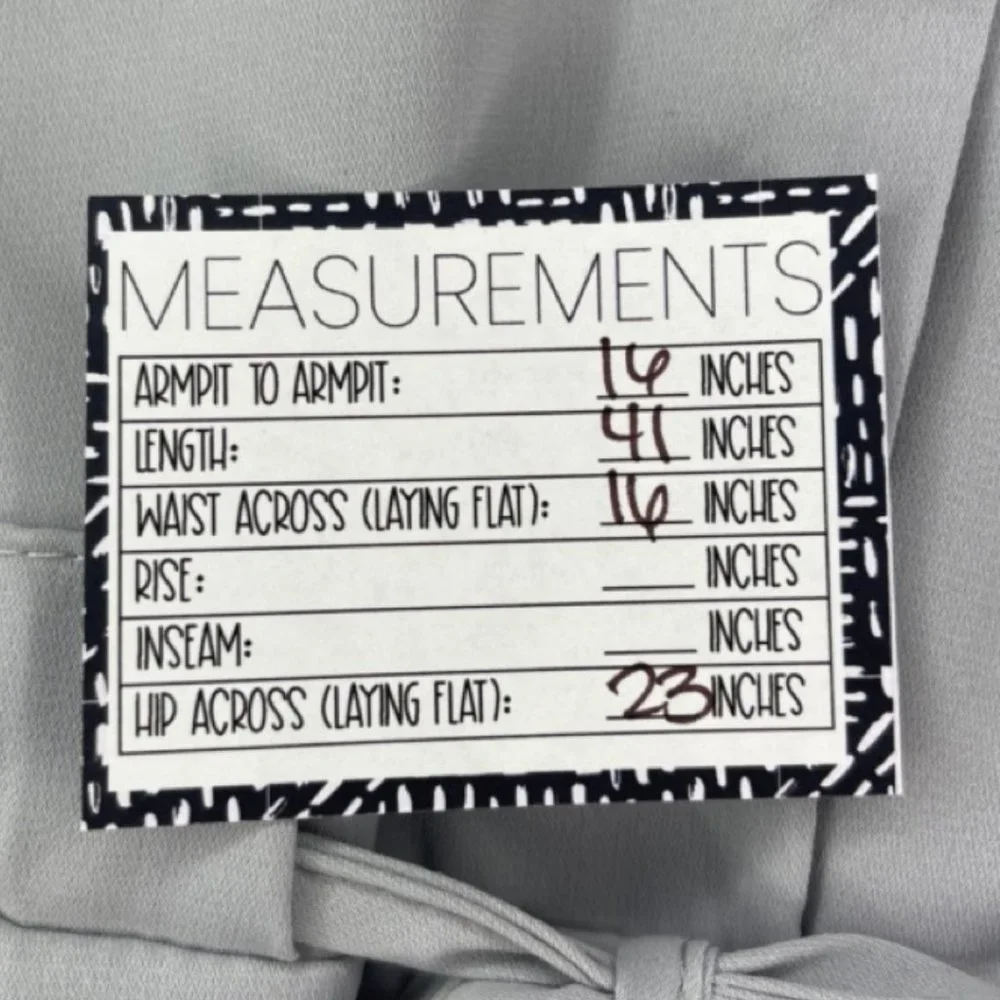 MEASUREMENTS
ARMPIT TO ARMPIT: 16 INCHES
LENGTH: 41 INCHES
WAIST ACROSS (LAYING FLAT): 16 INCHES
RISE: ____ INCHES
INSEAM: ____ INCHES
HIP ACROSS (LAYING FLAT): 23 INCHES